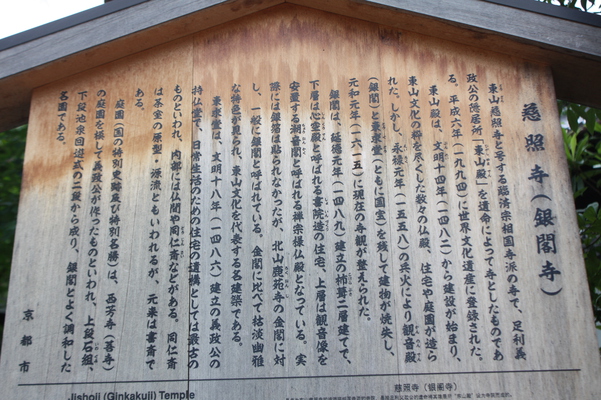 慈照寺(銀閣寺)
東山慈照寺と号する臨済宗相国寺派の寺で、足利義
政公の隠居所「東山殿」を遺命によって寺としたものであ
る。平成六年(一九九四)に世界文化遺産に登録された。
東山殿は、文明十四年(一四八二)から建設が始まり、
東山文化の粋を尽くした数々の仏殿、住宅や庭園が造ら
れた。しかし、永禄元年(一五五八)の兵火により観音殿
(銀閣)と東求堂(ともに国宝)を残して建物が焼失し、
元和元年(一六一五)に現在の寺観が整えられた。
銀閣は、延徳元年(一四八九)建立の杮葺二層建てで、
下層は心空殿と呼ばれる書院造の住宅、上層は観音像を
安置する潮音閣と呼ばれる禅宗様仏殿となっている。実
際には銀箔は貼られなかったが、北山鹿苑寺の金閣に対
し、一般に銀閣と呼ばれている。金閣に比べて枯淡幽雅
な特色が見られ、東山文化を代表する名建築である。
東求堂は、文明十八年(一四八六)建立の義政公の
持仏堂で、日常生活のための住宅の遺構としては最古の
ものといわれ、内部には仏間や同仁斎などがある。同仁斎
は茶室の原型・源流ともいわれるが、元来は書斎で
ある。
庭園(国の特別史跡及び特別名勝)は、西芳寺(苔寺)
の庭園を模して義政公が作ったものといわれ、上段石組、
下段池泉回遊式の二段から成り、銀閣とよく調和した
名園である。
京都市
Jishoji (Ginkakuji) Temple
慈照寺(银阁寺)